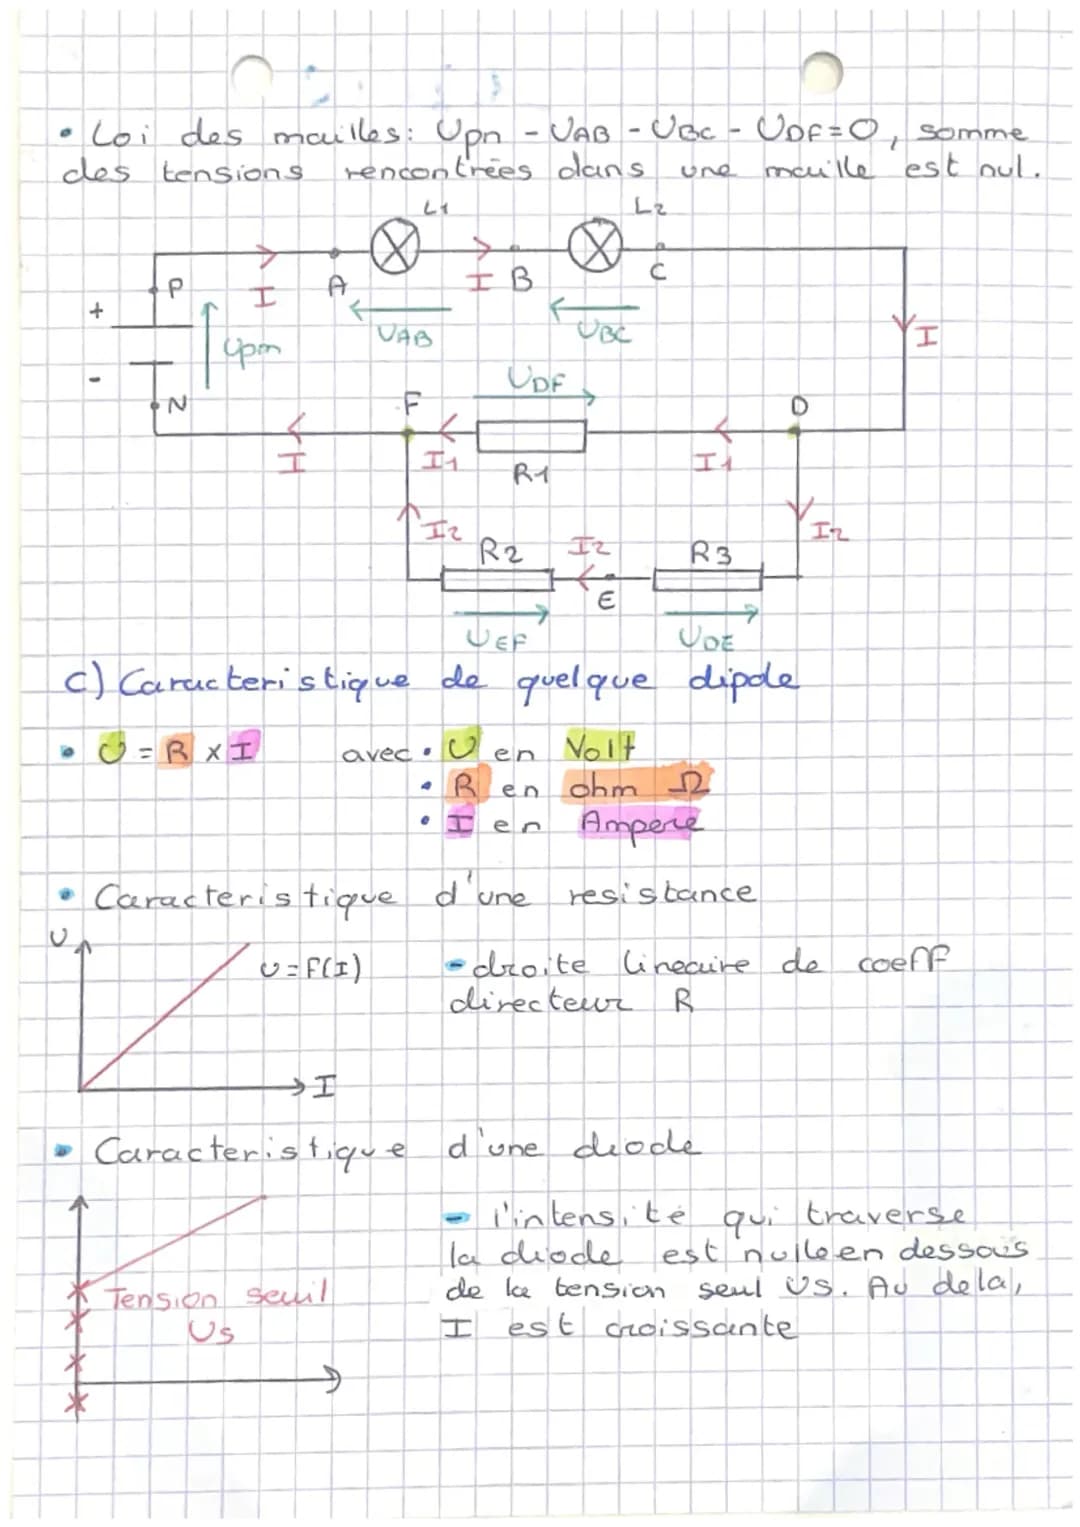 • Loi des mailles: Upn - UAB - UBC - UDF=0, somme
des tensions rencontrées dans une maille est nul.
L1
L2
P
I
A
I
B
C
+
UAB
UBC
I
Upn
-
UDF
N
F
D
I
I1
R1
I1
I2
R2
I2
R3
I2
E
UEF
UDE
c) Caracteristique de quelque dipole
• U = R x I avec • U en Volt
• R en ohm Ω
• I en Ampere
• Caracteristique d'une resistance
U
U=F(I) - droite lineaire de coeff
directeur R
I
• Caracteristique d'une diode
- l'intensité qui traverse
la diode est nulle en dessous
Tension seuil
de la tension seul Us. Au dela,
Us
I est croissante